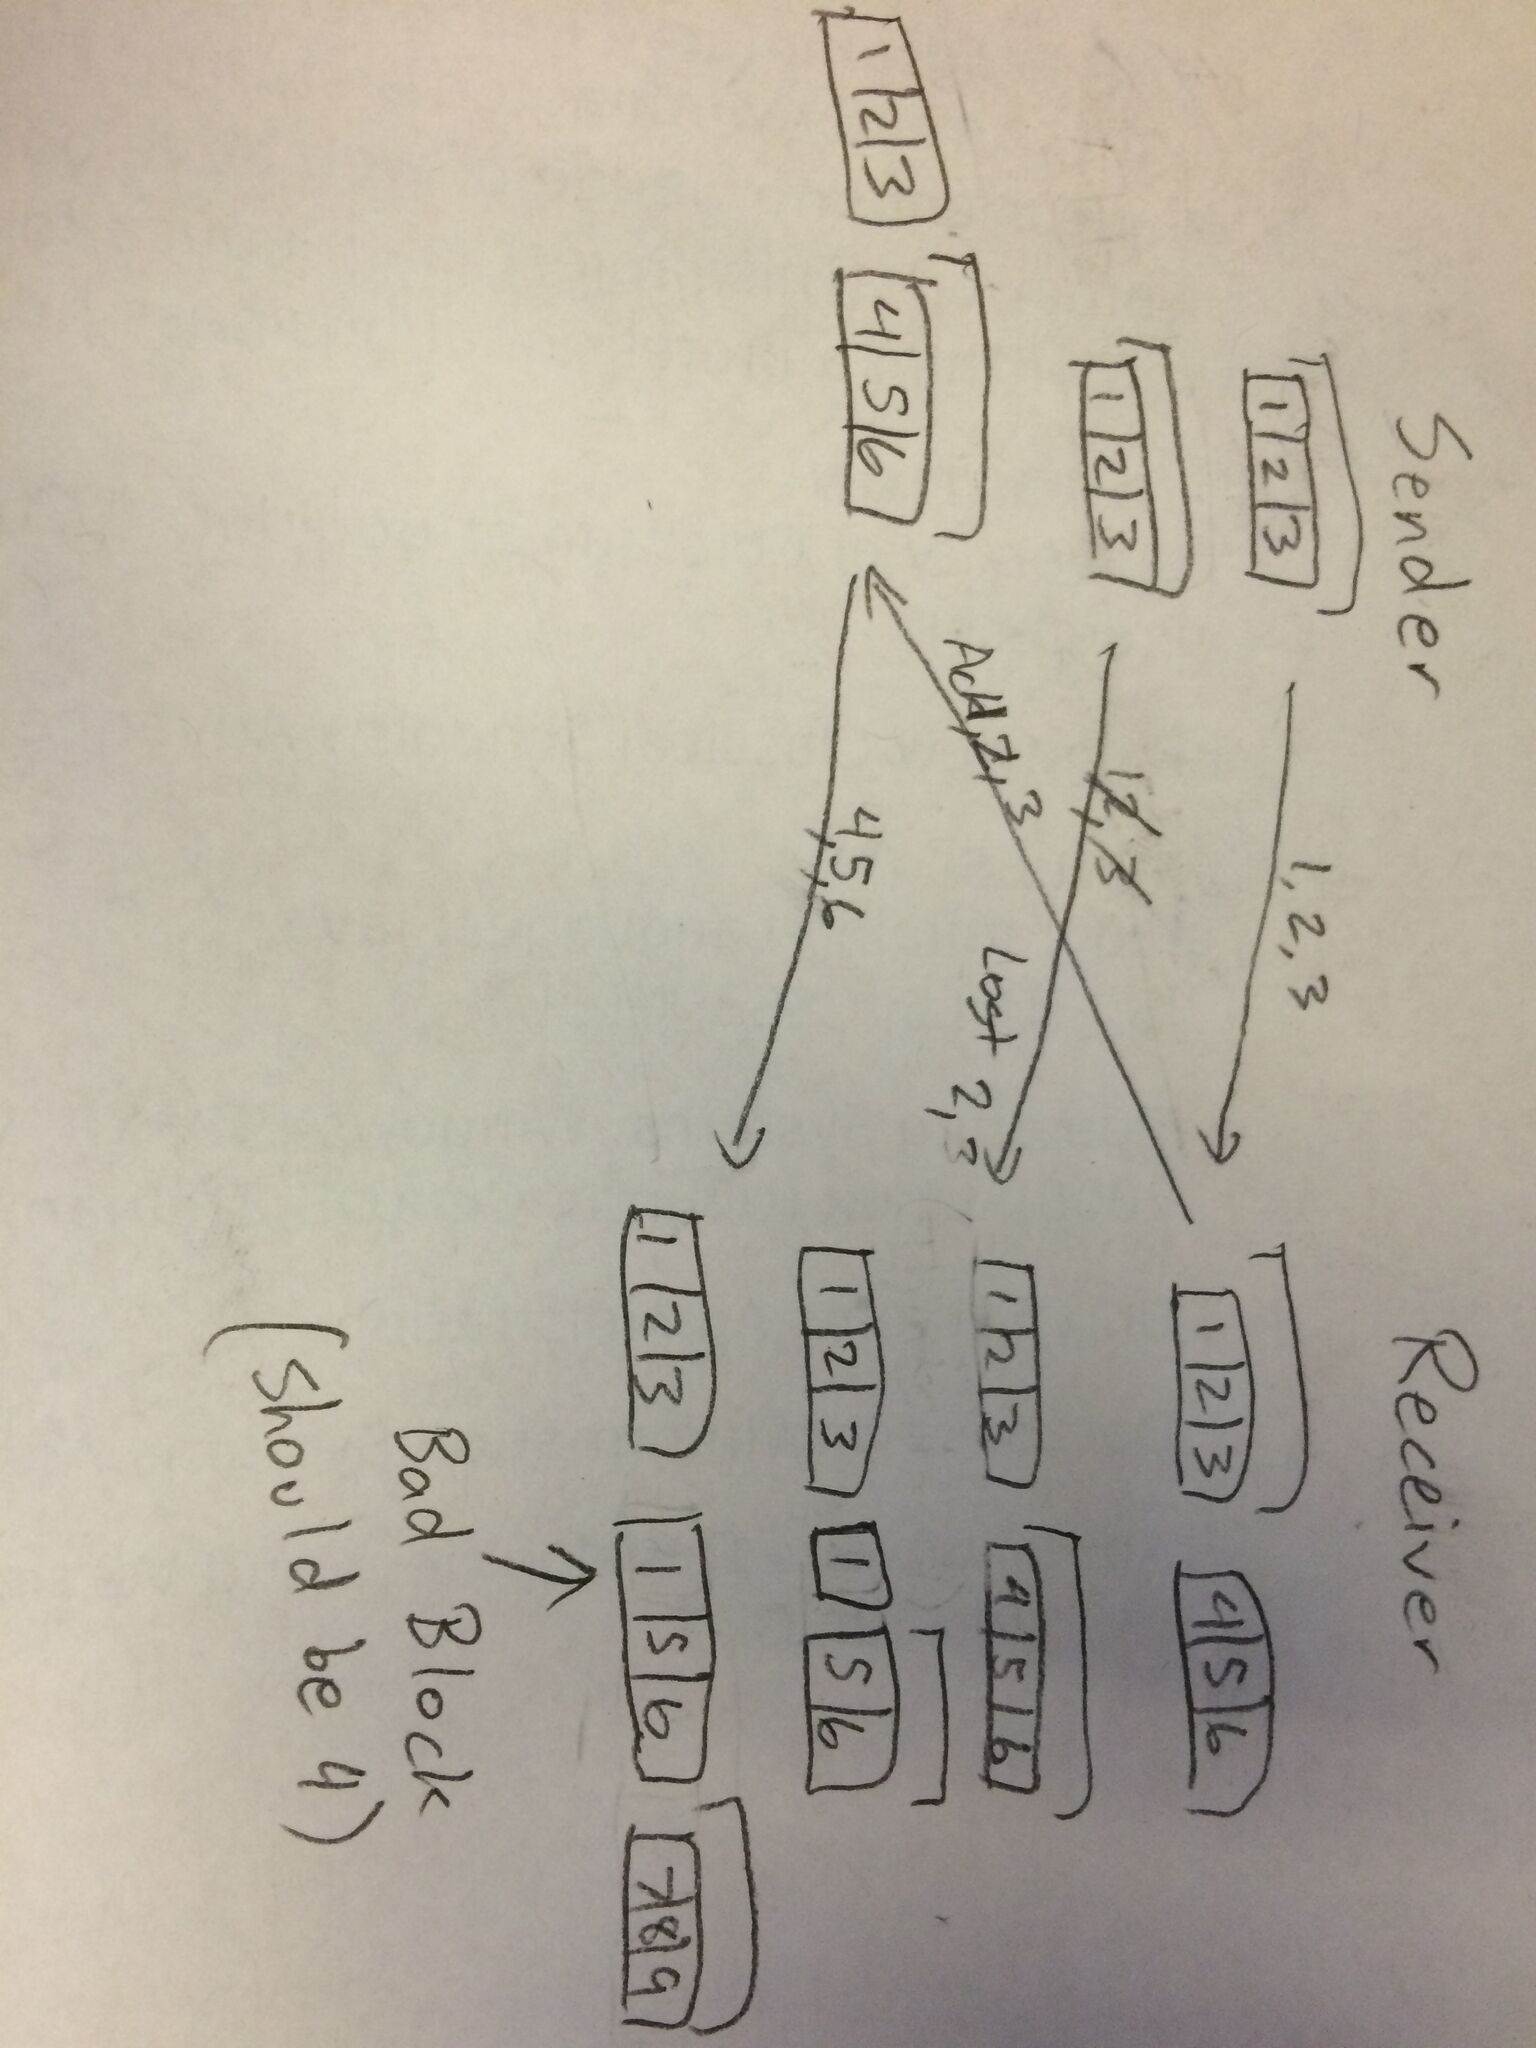 Sender Receiver
1 2 3 1, 2, 3 1 2 3 4 5 6
1 2 3 1, 2, 3 1 2 3 4 5 6
Lost 2, 3
Ack 1, 2, 3
1 2 3 4 5 6 1 2 3 1 5 6
4, 5, 6
1 2 3 1 5 6 7 8 9
Bad Block
(Should be 4)